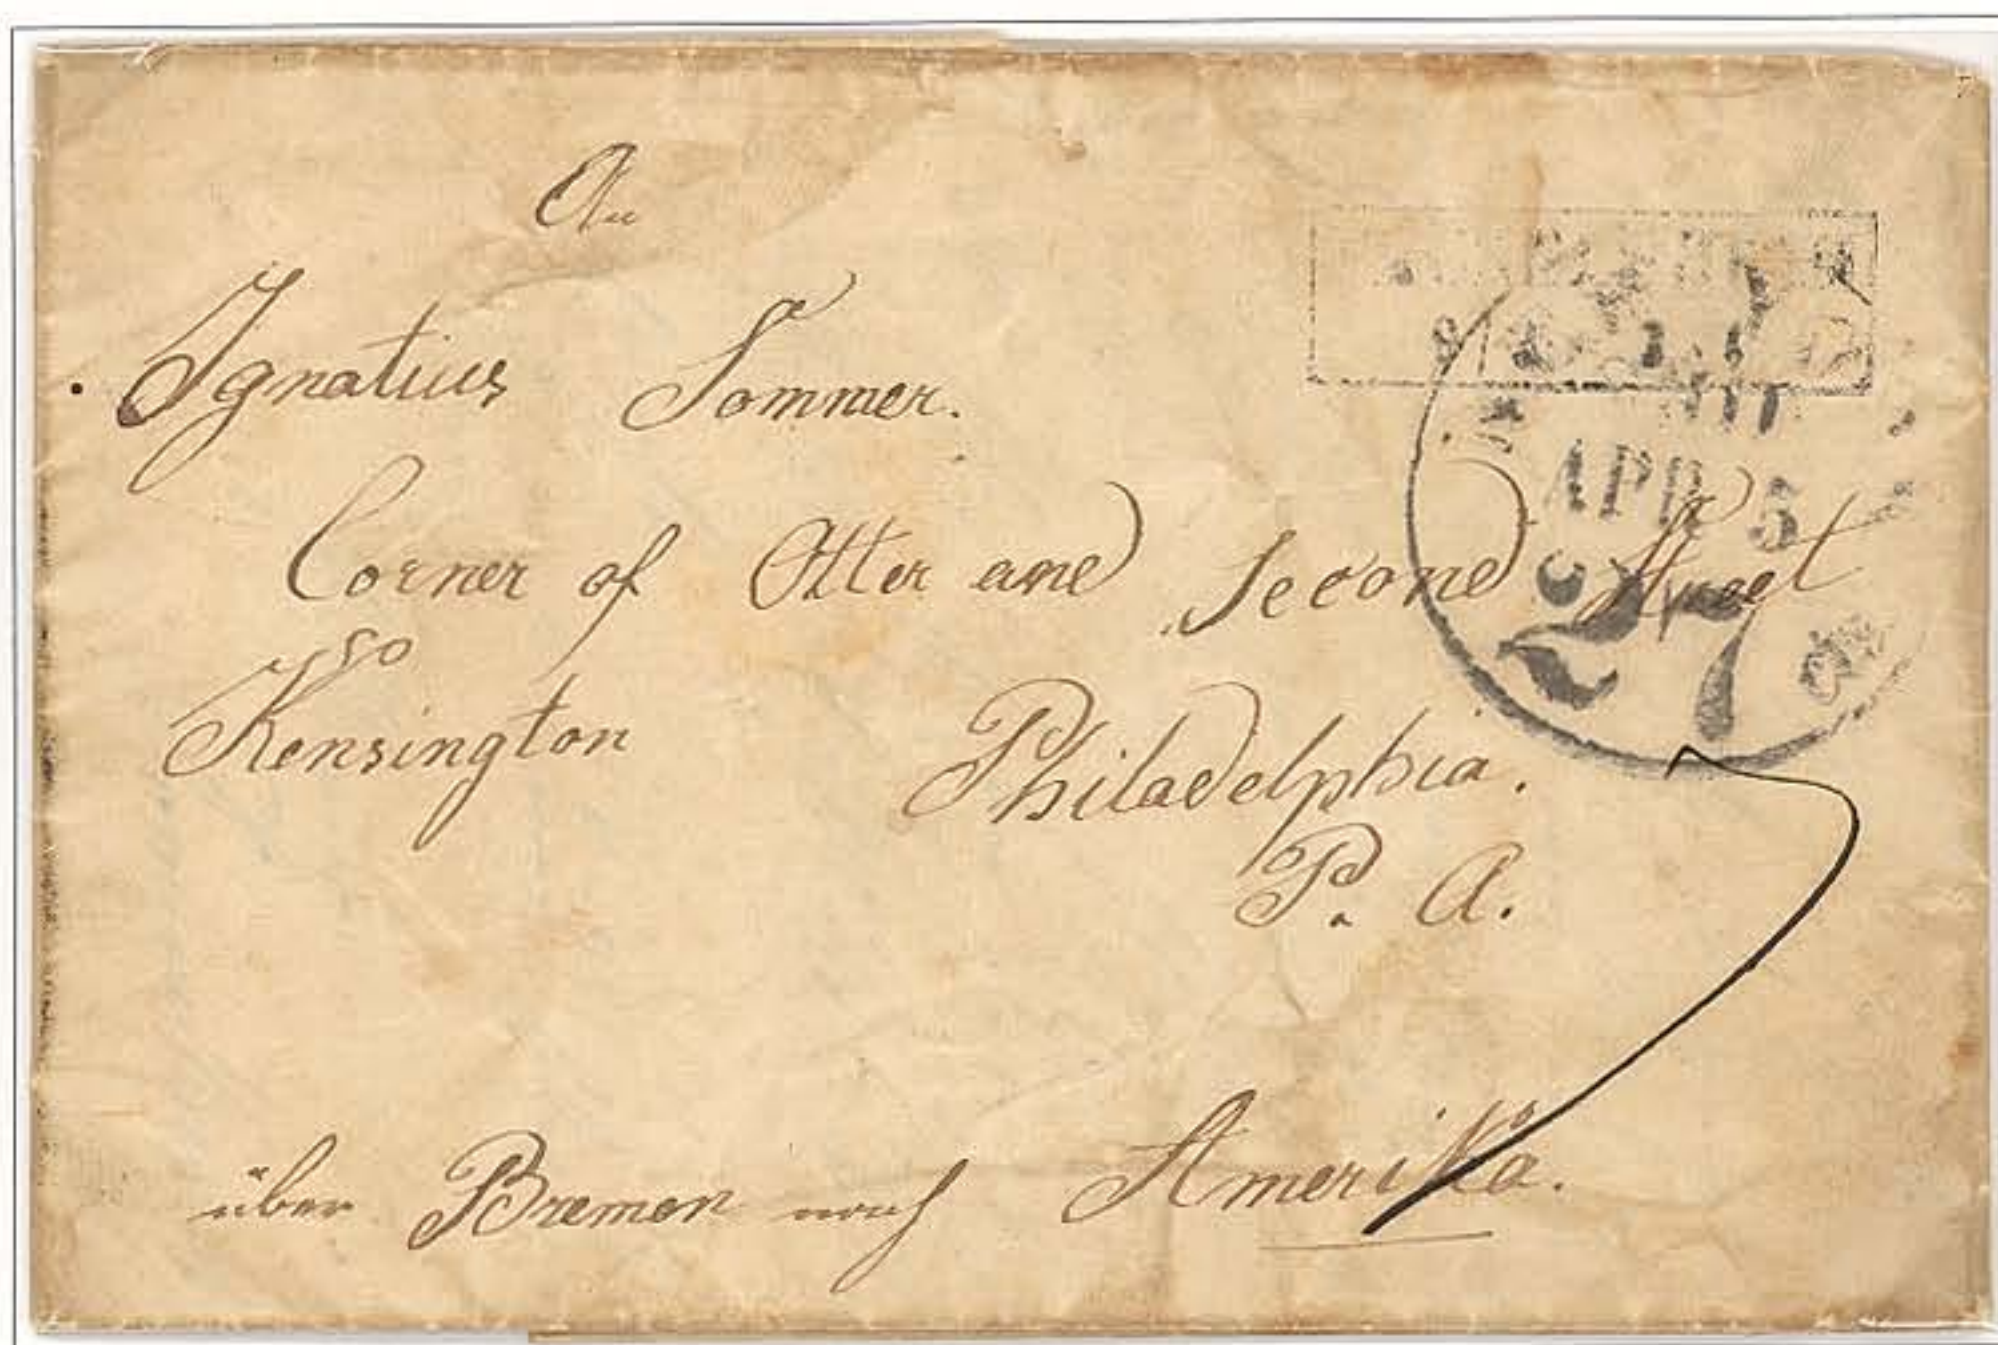 An
Ignatius Sommer.
Corner of Otter and Second Street
Co
Kensington Philadelphia.
P. A.
über Bremen nach Amerika.
APR 5
27